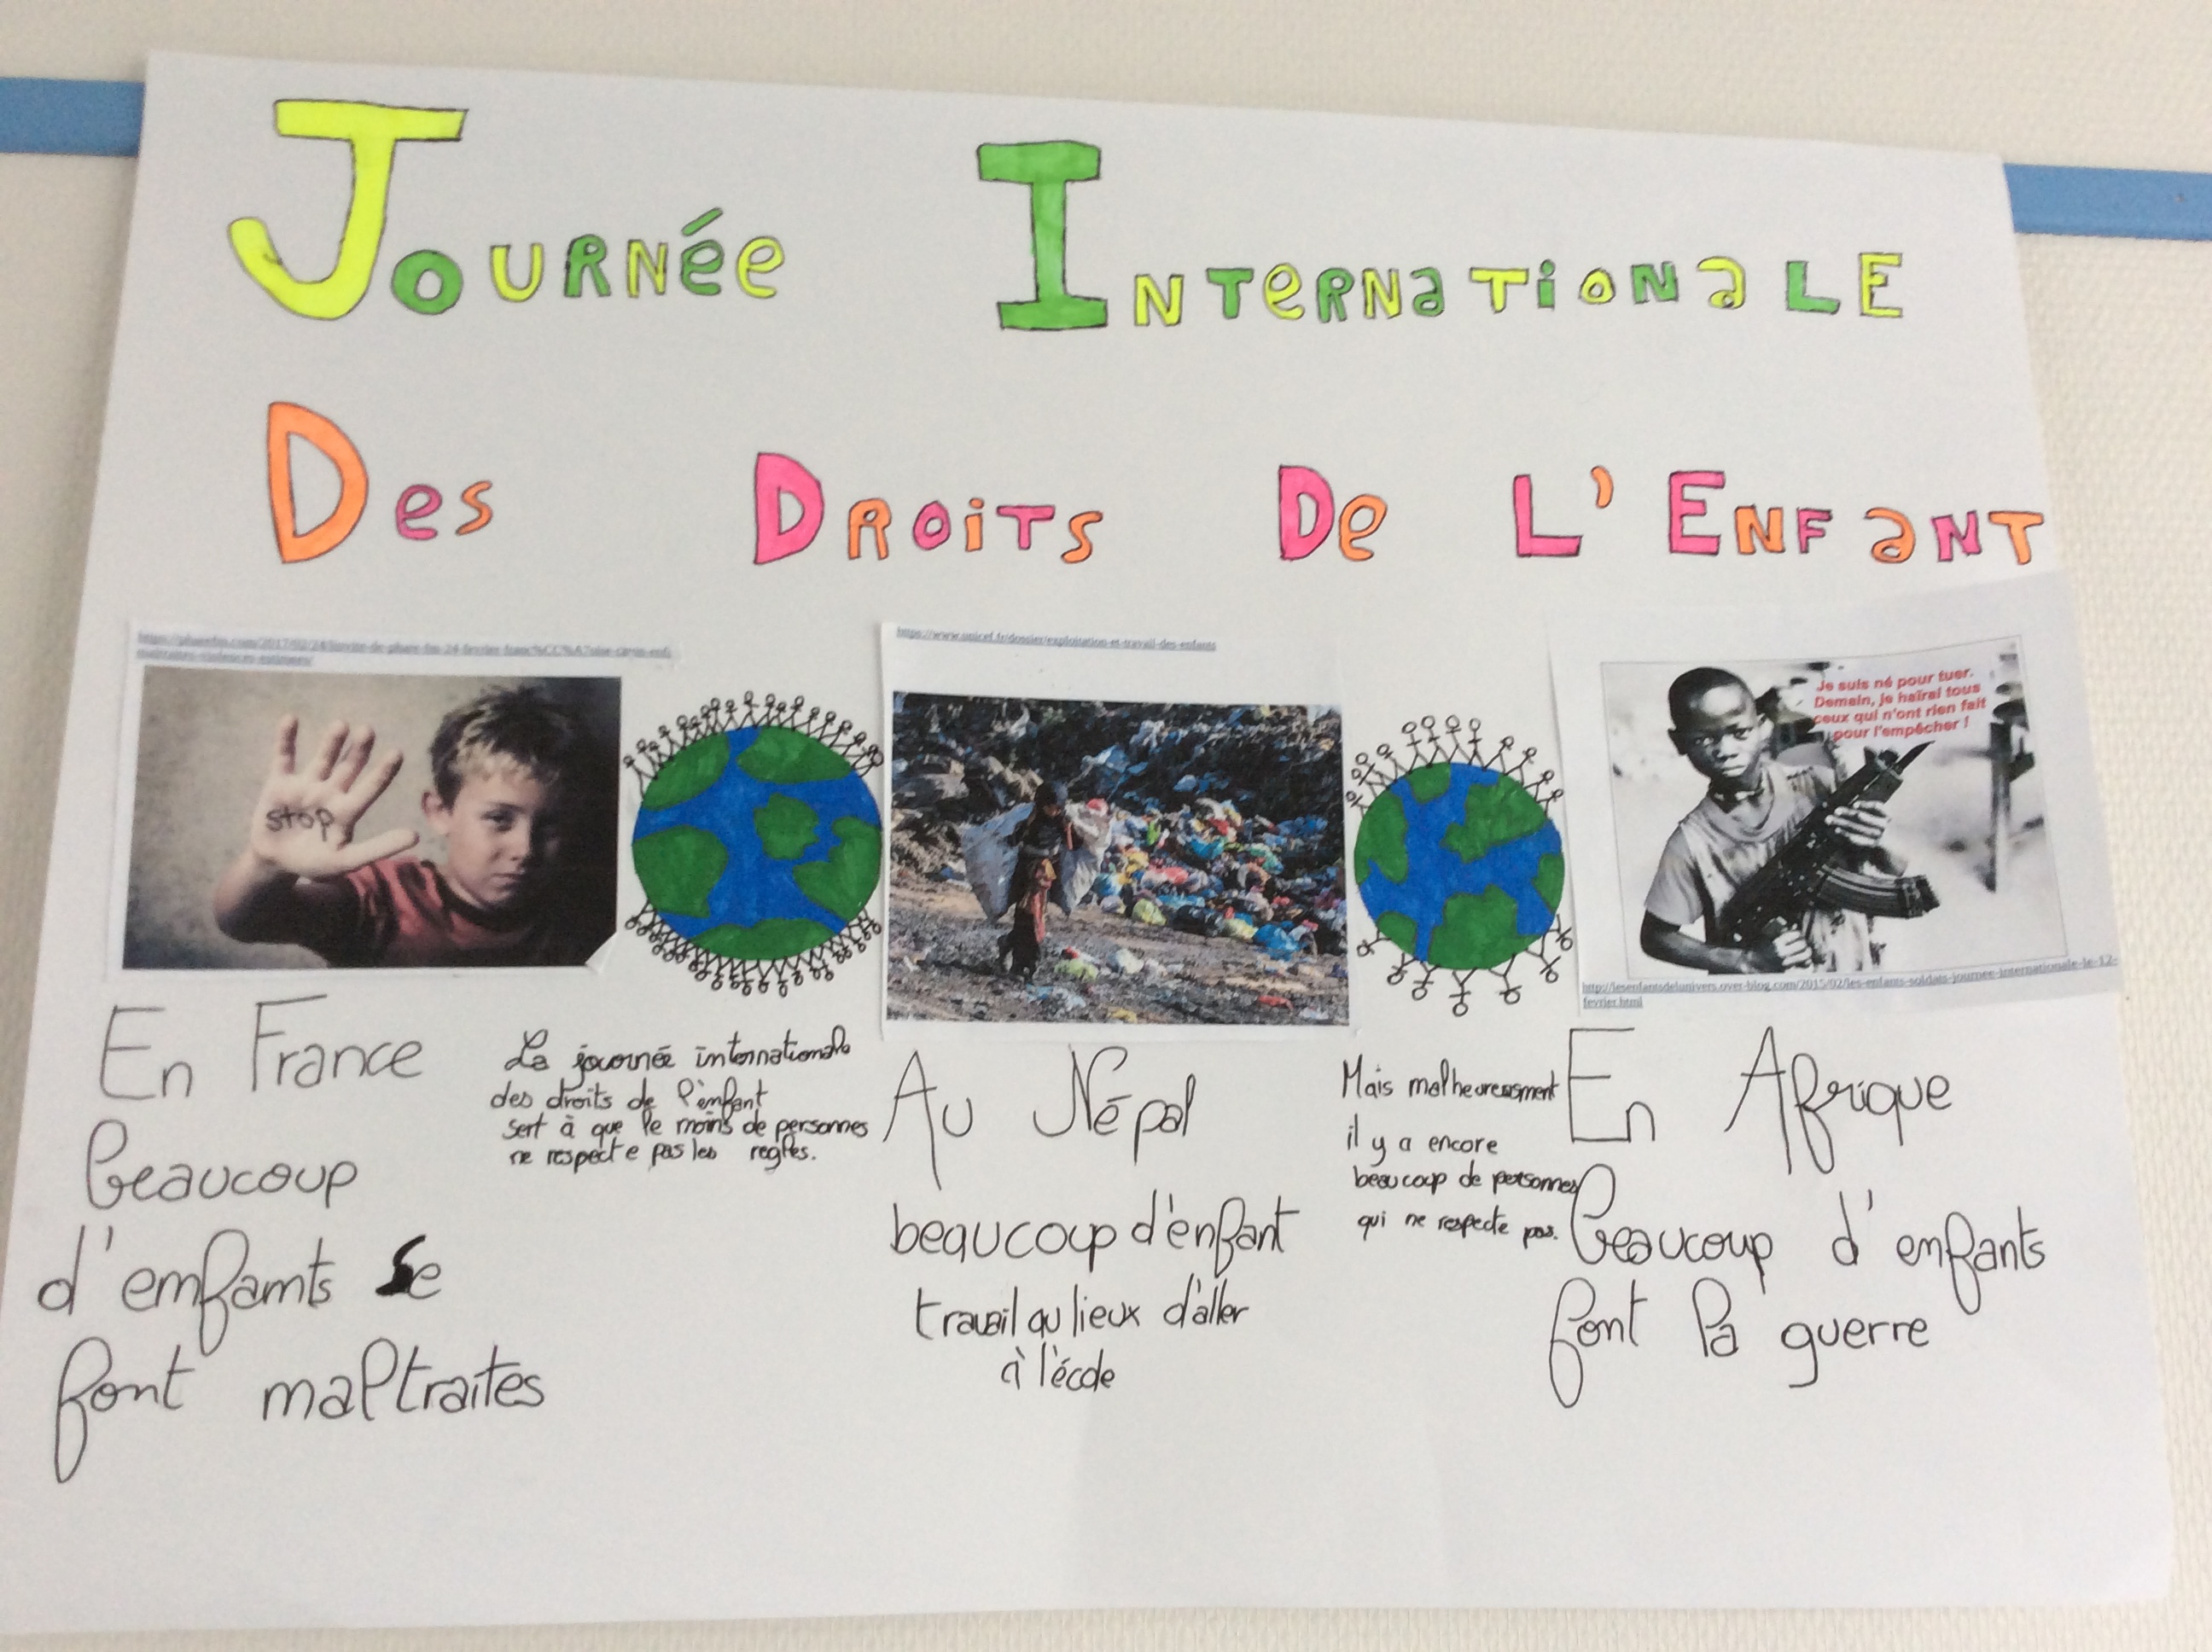 Journée Internationale
Des Droits De L'Enfant
https://www.unicef.fr/dossier/exploitation-et-travail-des-enfants
stop
Je suis né pour tuer.
Demain, je haïrai tous
ceux qui n'ont rien fait
pour l'empêcher !
http://lesenfantsdelunivers.over-blog.com/2015/02/les-enfants-soldats-journee-internationale-le-12-
fevrier.html
En France
beaucoup
d'enfants se
font maltraites
La journée internationale
des droits de l'enfant
sert à que le moins de personnes
ne respecte pas les regles.
Au Népal
beaucoup d'enfant
travail au lieux d'aller
à l'école
Mais malheureusment
il y a encore
beaucoup de personnes
qui ne respecte pas.
En Afrique
beaucoup d'enfants
font la guerre